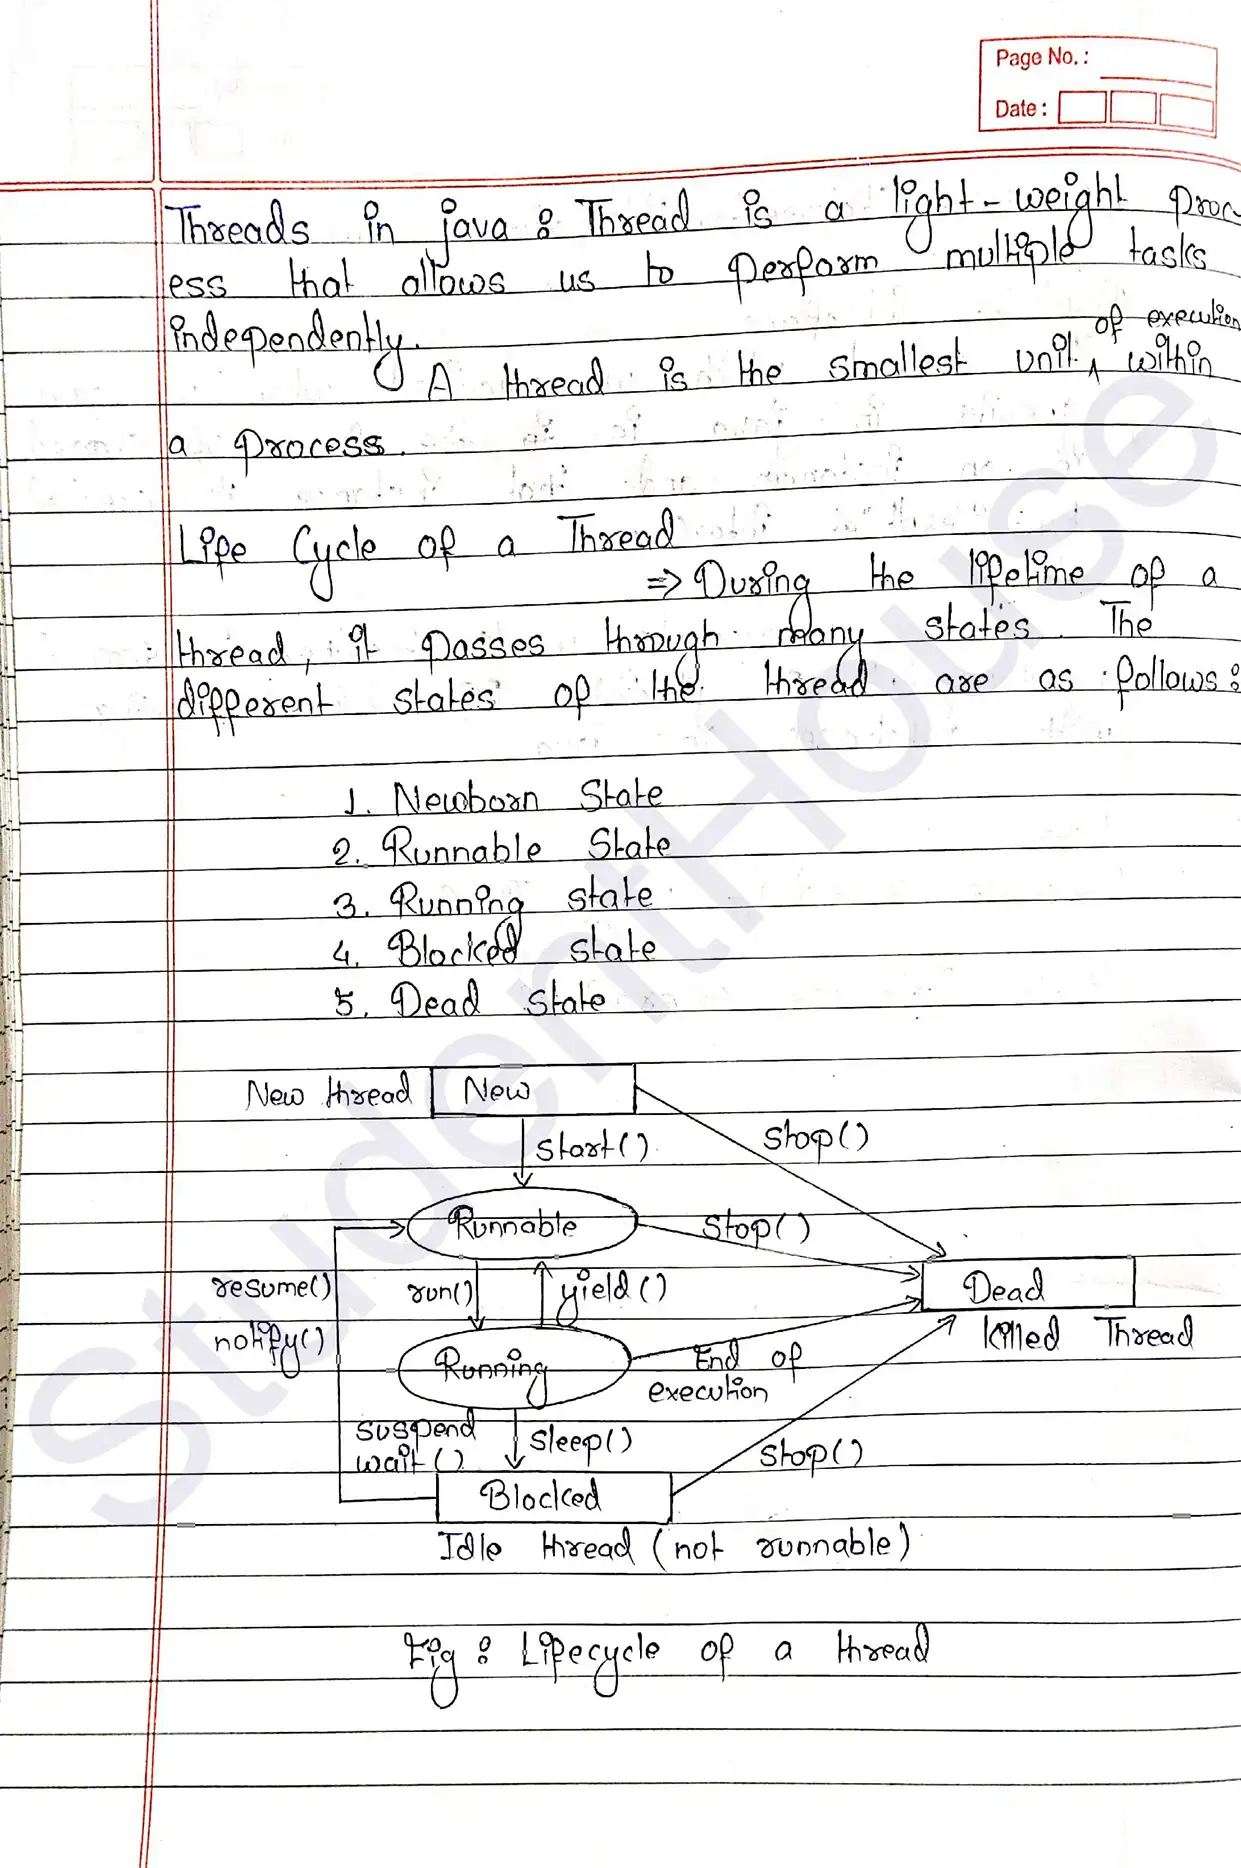 Page No. :
Date :
Threads in java : Thread is a light-weight proc
ess that allows us to perform multiple tasks
independently.
of execution
A thread is the smallest unit ^ within
a process.
Life Cycle of a Thread
=> During the lifetime of a
thread, it passes through many states. The
different states of the thread are as follows:
1. Newborn State
2. Runnable State
3. Running state
4. Blocked state
5. Dead State
New thread New
start()
stop()
Runnable
stop()
resume()
run()
yield()
Dead
notify()
Killed Thread
Running
End of
execution
suspend
wait()
sleep()
stop()
Blocked
Idle thread (not runnable)
Fig : Lifecycle of a thread
StudentHouse